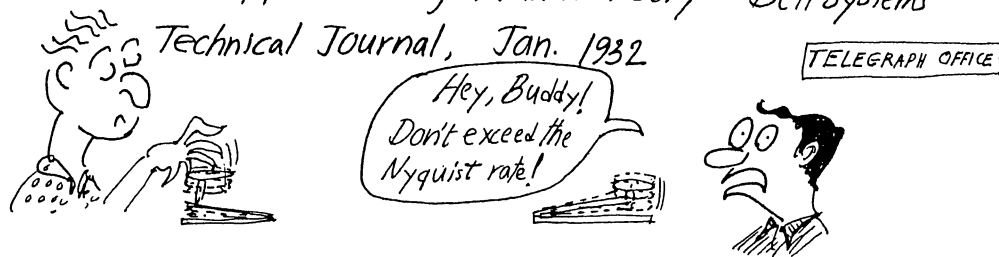 Technical Journal, Jan. 1932
TELEGRAPH OFFICE
Hey, Buddy!
Don't exceed the
Nyquist rate!